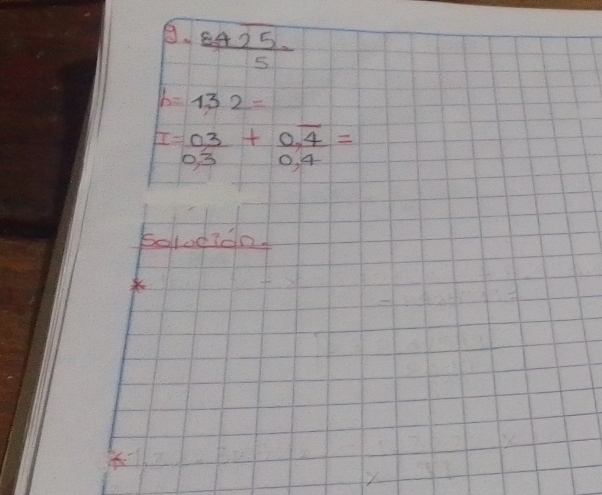 g. 8,4 2̅5̅
5
h = 1,3 2 =
I = 0,3 + 0,4̅ =
0,3 0,4
Solución.
*
*